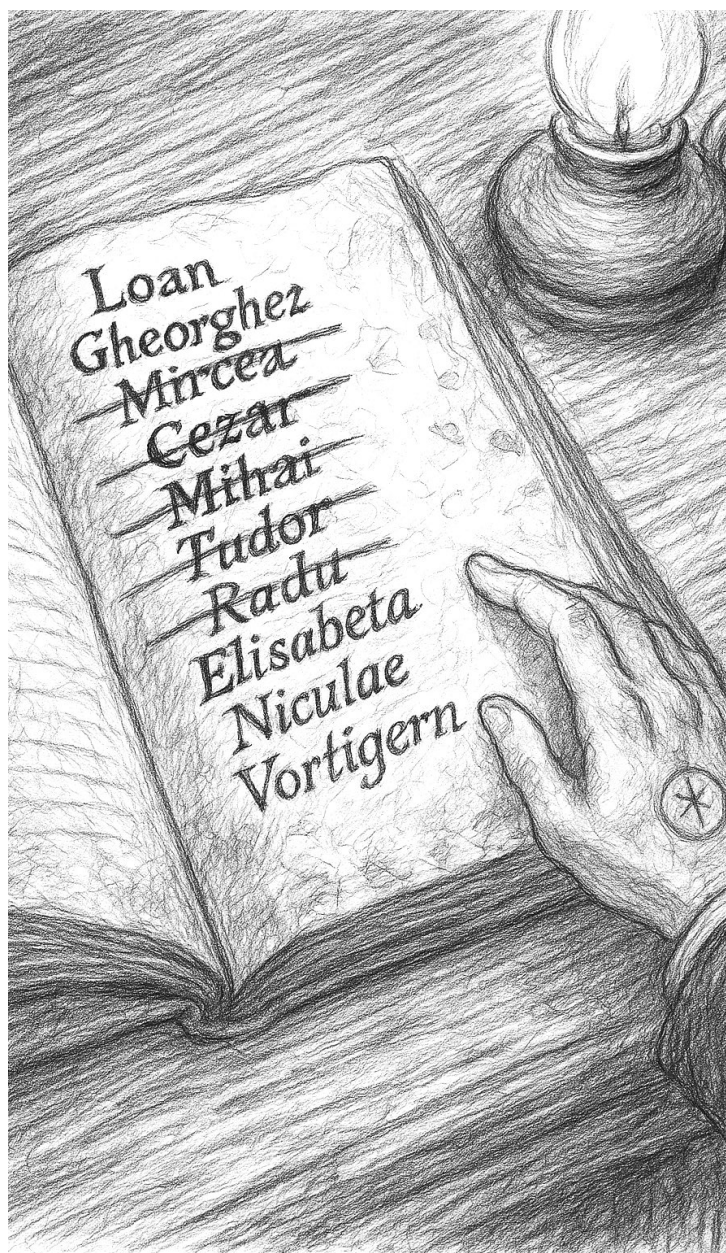 Loan
Gheorghez
Mircea
Cezar
Mihai
Tudor
Radu
Elisabeta
Niculae
Vortigern